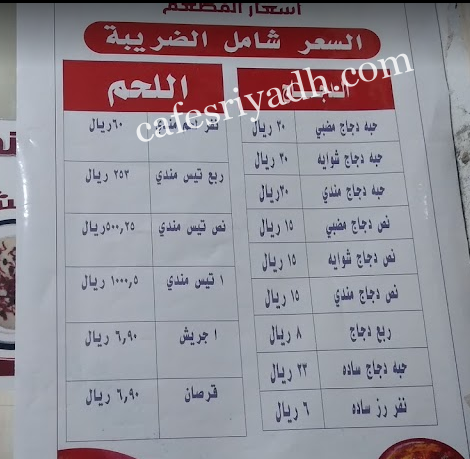 أسعار المطعم
السعر شامل الضريبة
الدجاج
حبه دجاج مضبي ٣٠ ريال
حبه دجاج شوايه ٣٠ ريال
حبه دجاج مندي ٣٠ريال
نص دجاج مضبي ١٥ ريال
نص دجاج شوايه ١٥ ريال
نص دجاج مندي ١٥ ريال
ربع دجاج ٨ ريال
حبه دجاج ساده ٢٣ ريال
نفر رز ساده ٦ ريال
اللحم
نفر مندي ٦٠ريال
ربع تيس مندي ٢٥٣ ريال
نص تيس مندي ٥٠٠,٢٥ريال
١ تيس مندي ١٠٠٠,٥ ريال
١ جريش ٦,٩٠ ريال
قرصان ٦,٩٠ ريال
cafesriyadh.com